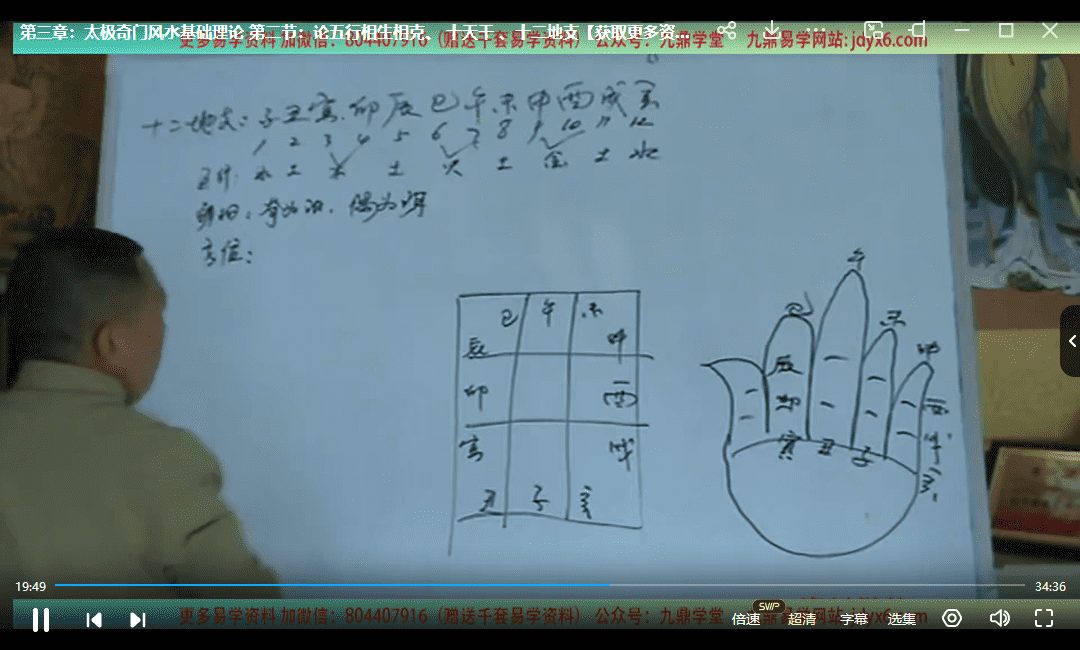 第三章：太极奇门风水基础理论 第二节：论五行相生相克、十天干、十二地支【获取更多资...
更多易学资料 加微信：804407916（赠送千套易学资料） 公众号：九鼎易学堂 九鼎易学网站：jdyx6.com
十二地支：子丑寅卯辰巳午未申酉戌亥
1 2 3 4 5 6 7 8 9 10 11 12
五行：水土木 土 火 土 金 土 水
阴阳：奇为阳，偶为阴
方位：
巳 午 未
辰 申
卯 酉
寅 戌
丑 子 亥
午
巳 未
申
辰
卯 酉
寅 丑 子 戌
亥
19:49
34:36
更多易学资料 加微信：804407916（赠送千套易学资料） 公众号：九鼎易学堂 九鼎易学网站：jdyx6.com
SVIP
倍速 超清 字幕 选集